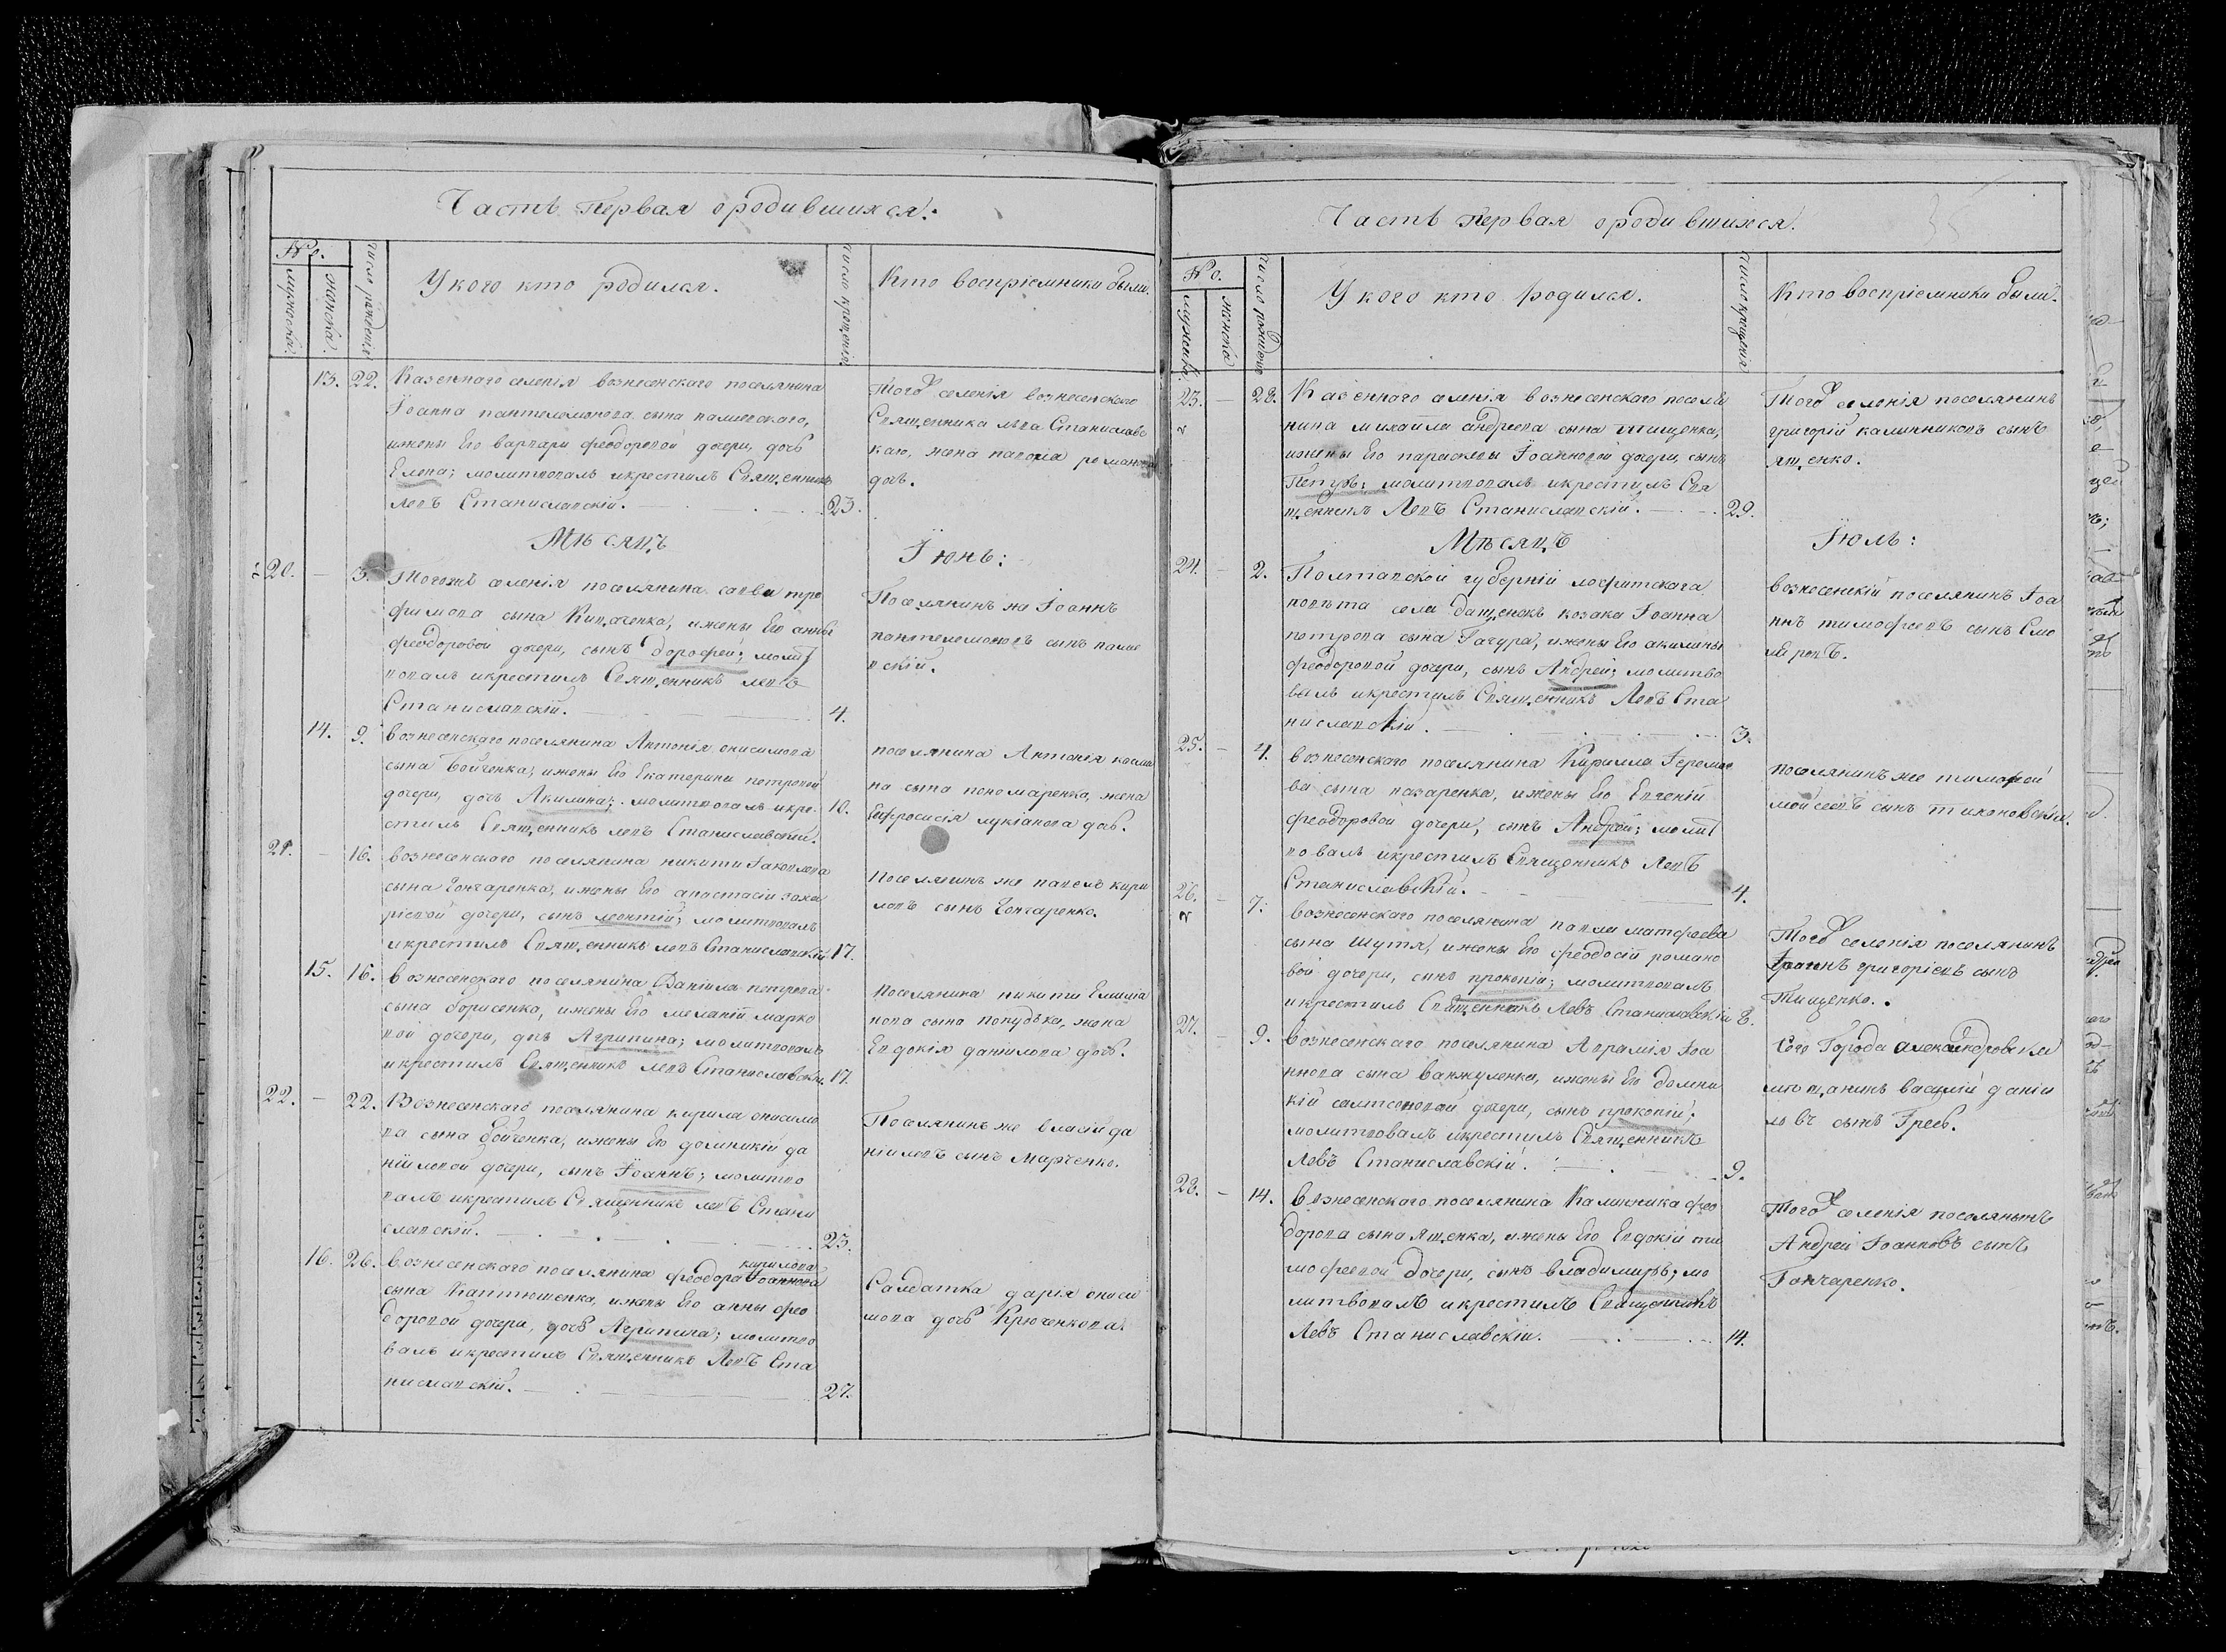 Часть первая ородившихся.
№.
мужеска.
женска.
число рждения
У кого кто родился.
число крещения
Кто восприемники были.
13. 22. Казенного селенія вознесенского поселянина
Іоанна пантелемонова сына палиевского,
ижены Его варвари феодоровой дочери, дочь
Елена; молитвовалъ икрестилъ Священникъ
левъ Станиславскій. 23.
Того селенія вознесенского
Священника льва Станиславс
каго, жена
дочь.
Мѣсяцъ Іюнь:
20. — 3. Тогожъ селенія поселянина саввы тро
фимова сына Кипаченка, ижены Его анны
феодоровой дочери, сынъ дорофей; молит
вовалъ икрестилъ Священникъ левъ
Станиславскій. 4.
Поселянинъ же Іоаннъ
пантелемоновъ сынъ палие
вскій.
14. 9. вознесенского поселянина Антонія онисимова
сына бойченка, ижены Его Екатерини петровой
дочери, дочь Акилина; молитвовалъ икре-
стилъ Священникъ левъ Станиславский. 10.
поселянина Антонія
на сына пономаренка, жена
Ефросинія лукіанова дочь.
21. — 16. вознесенского поселянина никити Іаковлева
сына Гончаренка, ижены Его анастасіи заха
ріевой дочери, сынъ леонтій; молитвовалъ
икрестилъ Священникъ левъ Станиславскій 17.
Поселянинъ же павелъ кири
ловъ сынъ Гончаренко.
15. 16. вознесенского поселянина Даніила петрова
сына борисенка, ижены Его меланіи марко
вой дочери, дочь Агрипина; молитвовалъ
икрестилъ Священникъ левъ Станиславскій. 17.
Поселянина никити Емилїа
нова сына жена
Евдокія даніилова дочь.
22. — 22. Вознесенского поселянина кирила онисимо
ва сына бойченка, ижены Его домникіи да
ніиловой дочери, сынъ Іоаннъ; молитво
валъ икрестилъ Священникъ левъ Стани
славскій. 23.
Поселянинъ же власій да
ніиловъ сынъ Марченко.
16. 26. вознесенского поселянина феодора Іоаннова кирилова
сына Кантюшенка, ижены Его анны фео
доровой дочери, дочь Агрипина; молитво
валъ икрестилъ Священникъ Левъ Ста
ниславскій. 27.
Салдатка дарія ониси
мова дочь Крюченкова.
Часть первая ородившихся.
№.
мужеска.
женска
число рждения
У кого кто родился.
число крещенія
Кто восприемники были.
23. — 28. Казенного селенія вознесенского поселя
нина михаила андреева сына тищенка,
ижены Его параскевы Іоанновой дочери, сынъ
Петръ; молитвовалъ икрестилъ Свя
щенникъ Левъ Станиславскій. 29.
Того селенія поселянинъ
григорій калинниковъ сынъ
ященко.
Мѣсяцъ Іюль:
24. — 2. Полтавской губерніи лофитскаго
повѣта села бащенокъ козака Іоанна
петрова сына Гачура, ижены Его акилины
феодоровой дочери, сынъ Андрей; молитво
валъ икрестилъ Священникъ Левъ Ста
ниславскій. 3.
вознесенскій поселянинъ Іоа
ннъ тимофеевъ сынъ
25. — 4. вознесенского поселянина Кирилла Іереме
ва сына назаренка, ижены Его Евгеніи
феодоровой дочери, сынъ Андрей; молит
вовалъ икрестилъ Священникъ Левъ
Станиславскій. 4.
поселянинъ же тимофей
мойсеевъ сынъ тихоновскій.
26. — 7. вознесенского поселянина павла матфеева
сына Шутя, ижены Его феодосіи романо
вой дочери, сынъ прокопій; молитвовалъ
икрестилъ Священникъ Левъ Станиславскій 8.
Того селенія поселянинъ
Іоаннъ григоріевъ сынъ
Тищенко.
27. — 9. вознесенского поселянина Аврамія Іоа
ннова сына Ванжуленка, ижены Его домни
кіи дочери, сынъ прокопій;
молитвовалъ икрестилъ Священникъ
Левъ Станиславскій. 9.
Сего Города александровска
мѣщанинъ василій даніи
ловъ сынъ Гребъ.
28. — 14. вознесенского поселянина Калинника фео
дорова сына ященка, ижены Его Евдокіи ти
мофеевой дочери, сынъ владимиръ; мо
литвовалъ икрестилъ Священникъ
Левъ Станиславскій. 14.
Того селенія поселянинъ
Андрей Іоанновъ сынъ
Гончаренко.